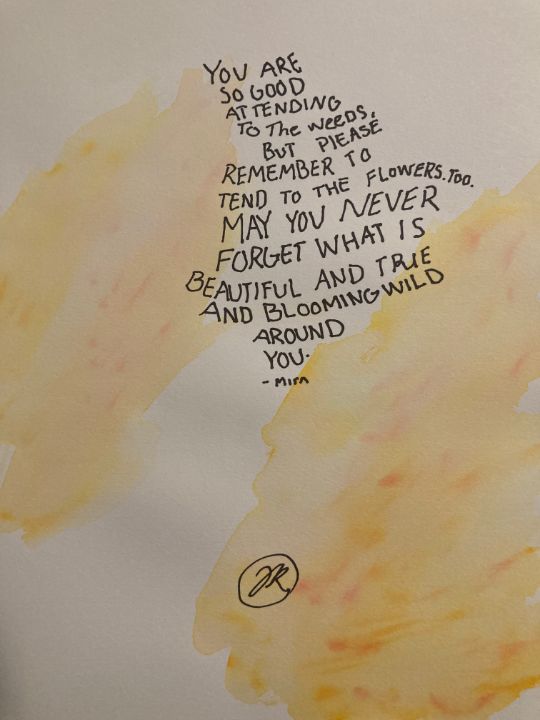 YOU ARE
SO GOOD
AT TENDING
TO The weeDS,
BUT PLEASE
REMEMBER TO
TEND TO THE FLOWERS.TOO.
MAY YOU NEVER
FORGET WHAT IS
BEAUTIFUL AND TRUE
AND BLOOMING WILD
AROUND
YOU.
- MIRA
JR